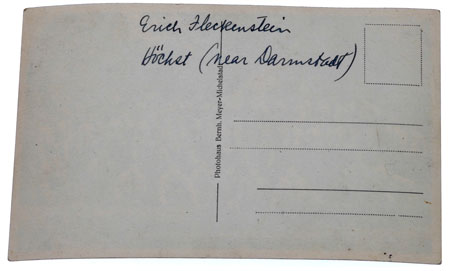 Erich Fleckenstein
Höchst (near Darmstadt)
Photohaus Bernh. Meyer-Michelstadt